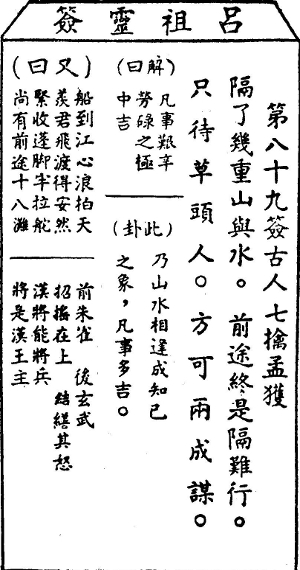 呂祖靈簽
第八十九簽古人 七擒孟獲
隔了幾重山與水。前途終是隔難行。
只待草頭人。方可兩成謀。
(解曰)
凡事艱辛
勞碌之極
中吉
(此卦)
乃山水相逢成知己
之象，凡事多吉。
(又曰)
船到江心浪拍天
羨君飛渡得安然
緊收蓬脚牢拉舵
尚有前途十八灘
前朱雀 後玄武
招搖在上 結繕其怒
漢將能將兵
將是漢王主